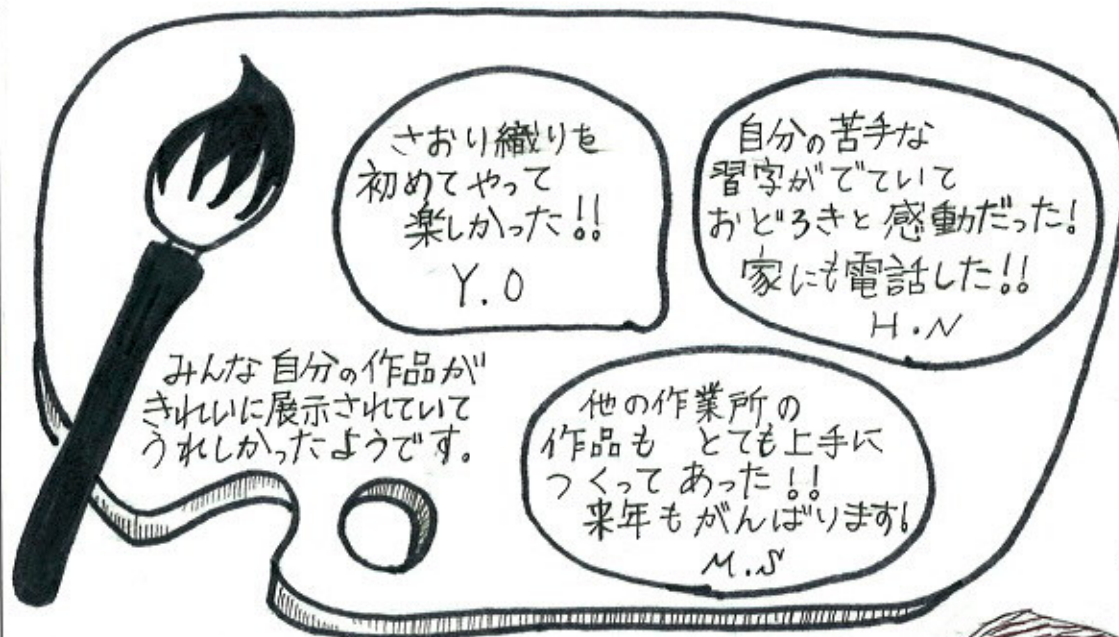 さおり織りを
初めてやって
楽しかった!!
Y.O
自分の苦手な
習字がでていて
おどろきと感動だった!
家にも電話した!!
H.N
みんな自分の作品が
きれいに展示されていて
うれしかったようです。
他の作業所の
作品も とても上手に
つくってあった!!
来年もがんばります!
M.S